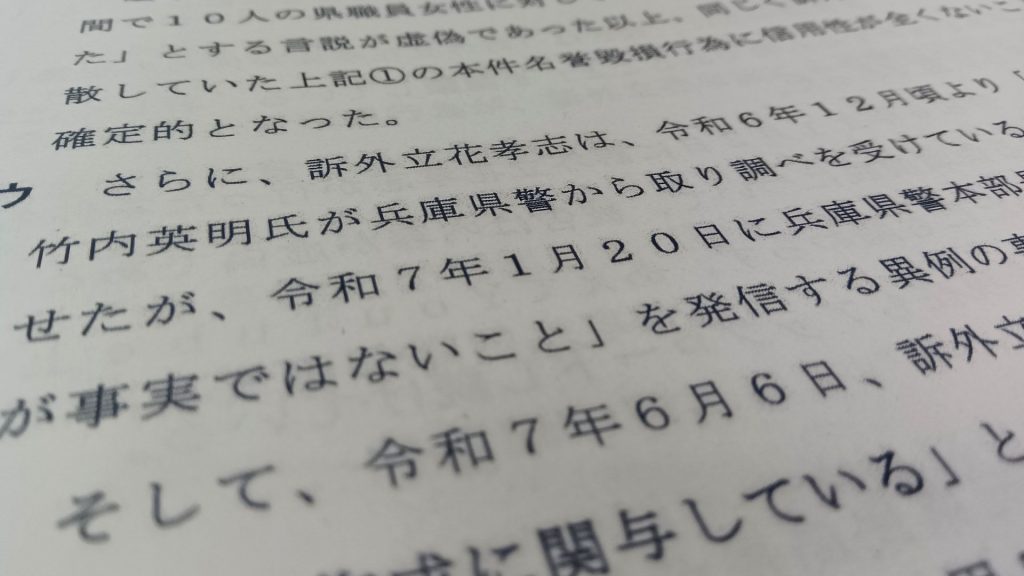 間で１０人の県職員女性に対し
た」とする言説が虚偽であった以上、同じく
散していた上記①の本件名誉毀損行為に信用性が全くないこ
確定的となった。
ウ　さらに、訴外立花孝志は、令和６年１２月頃より「
竹内英明氏が兵庫県警から取り調べを受けている
せたが、令和７年１月２０日に兵庫県警本部
が事実ではないこと」を発信する異例の事
そして、令和７年６月６日、訴外立
に関与している」と